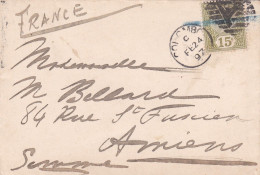 FRANCE
COLOMBO
C
FE 24
97
15
Mademoiselle
M Bellard
84 Rue St Fuscien
Amiens
Somme